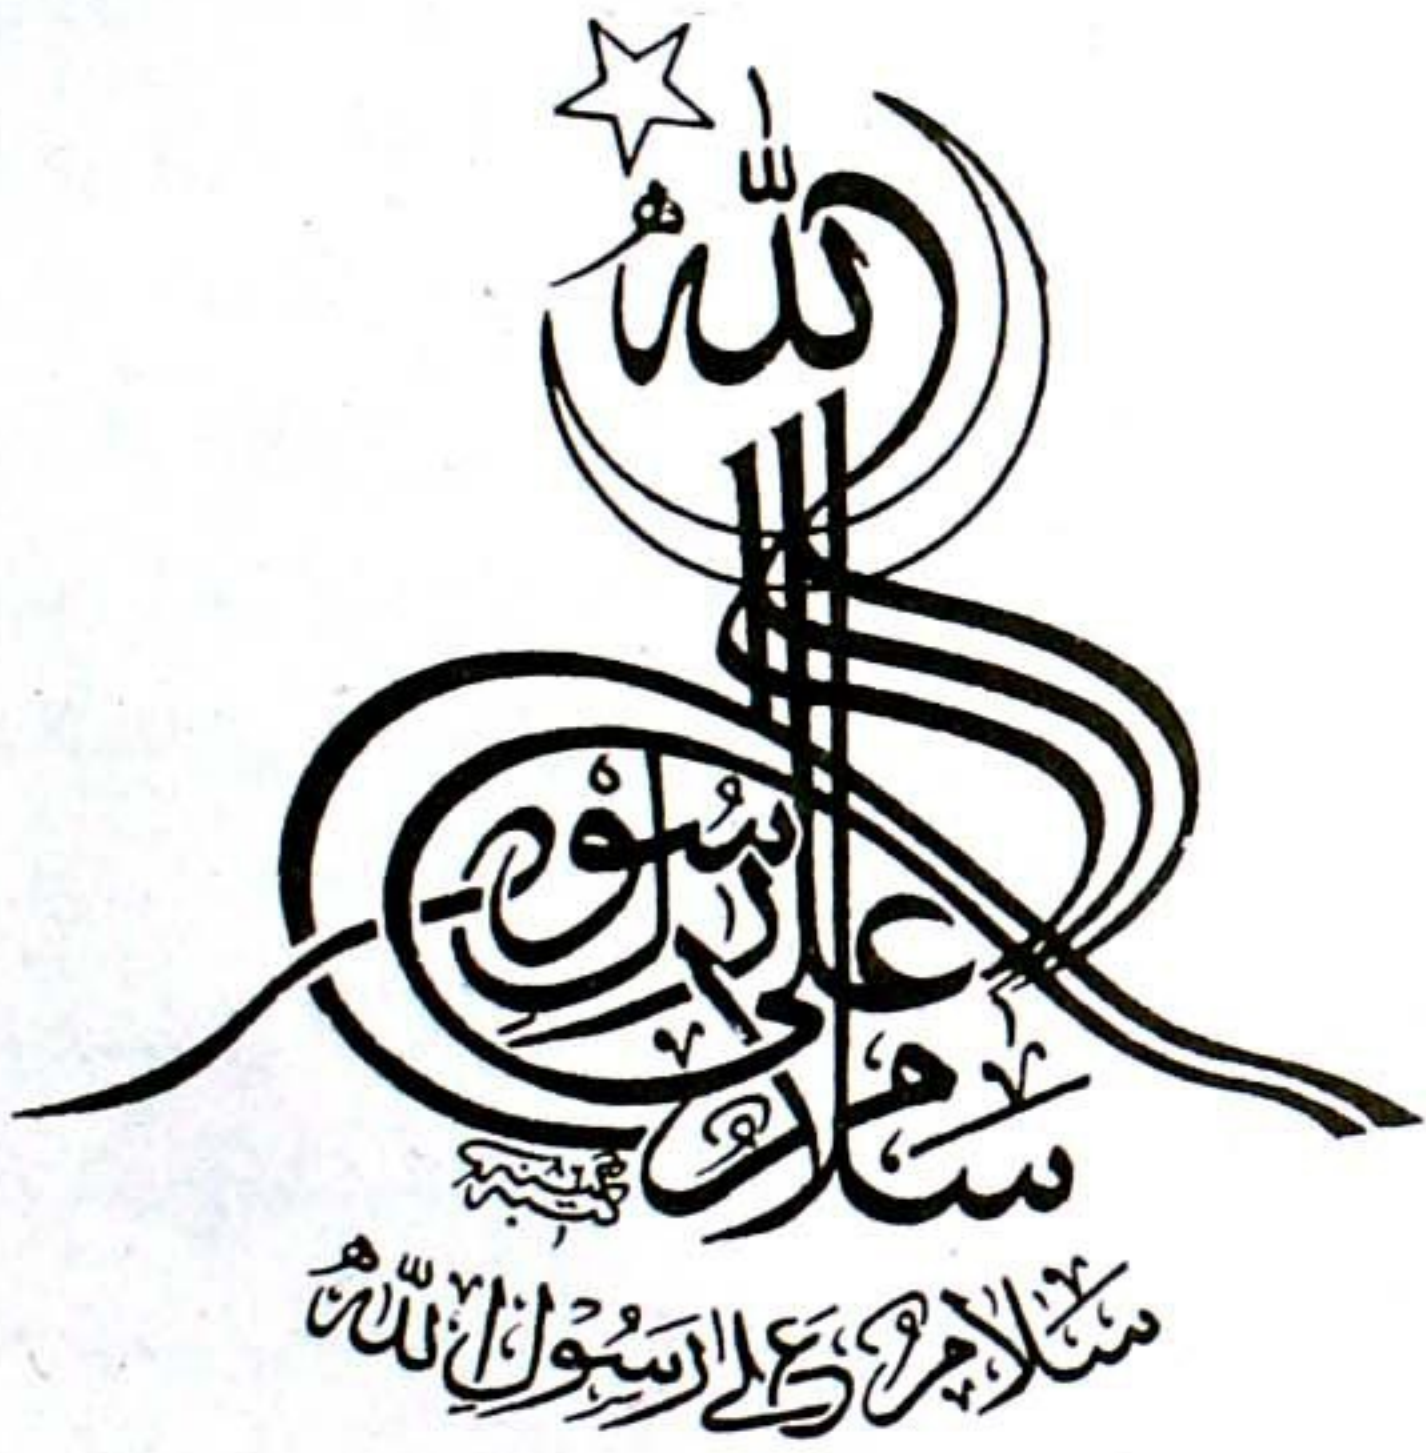 سلام على رسول الله
سَلَامٌ عَلٰى رَسُوْلِ اللّٰهُ